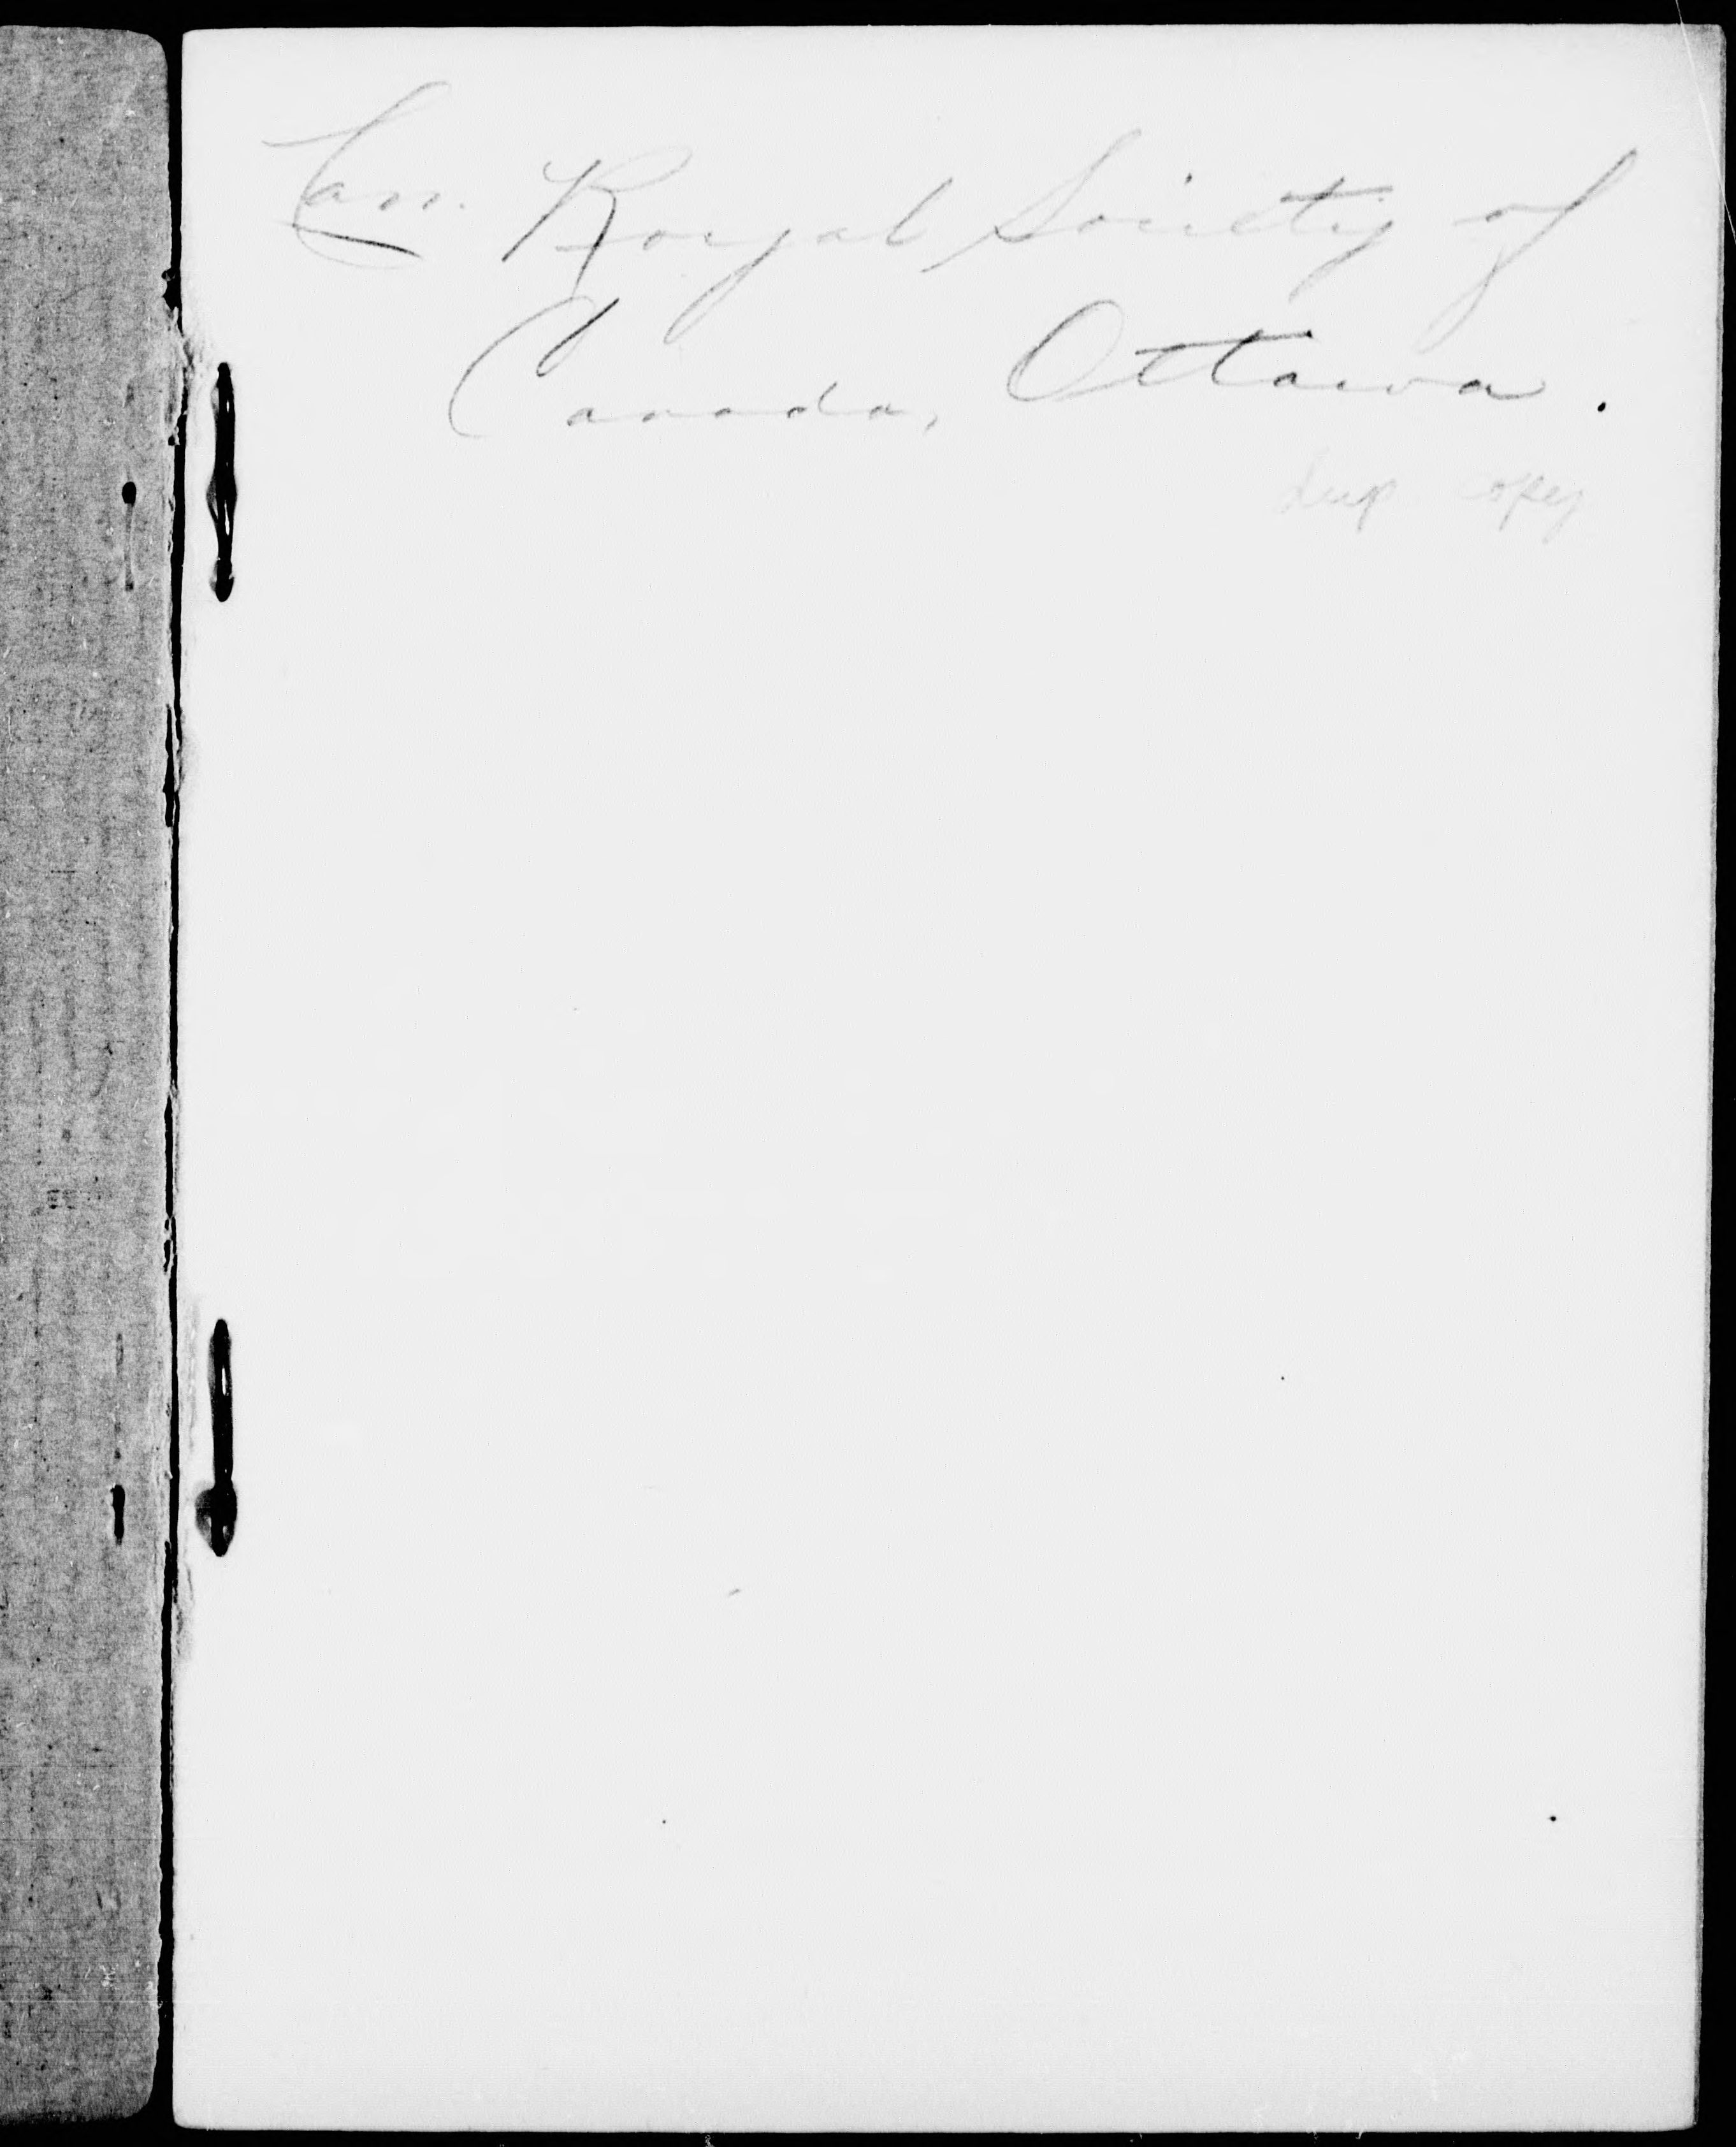 Can. Royal Society of
Canada, Ottawa.
dup. copy